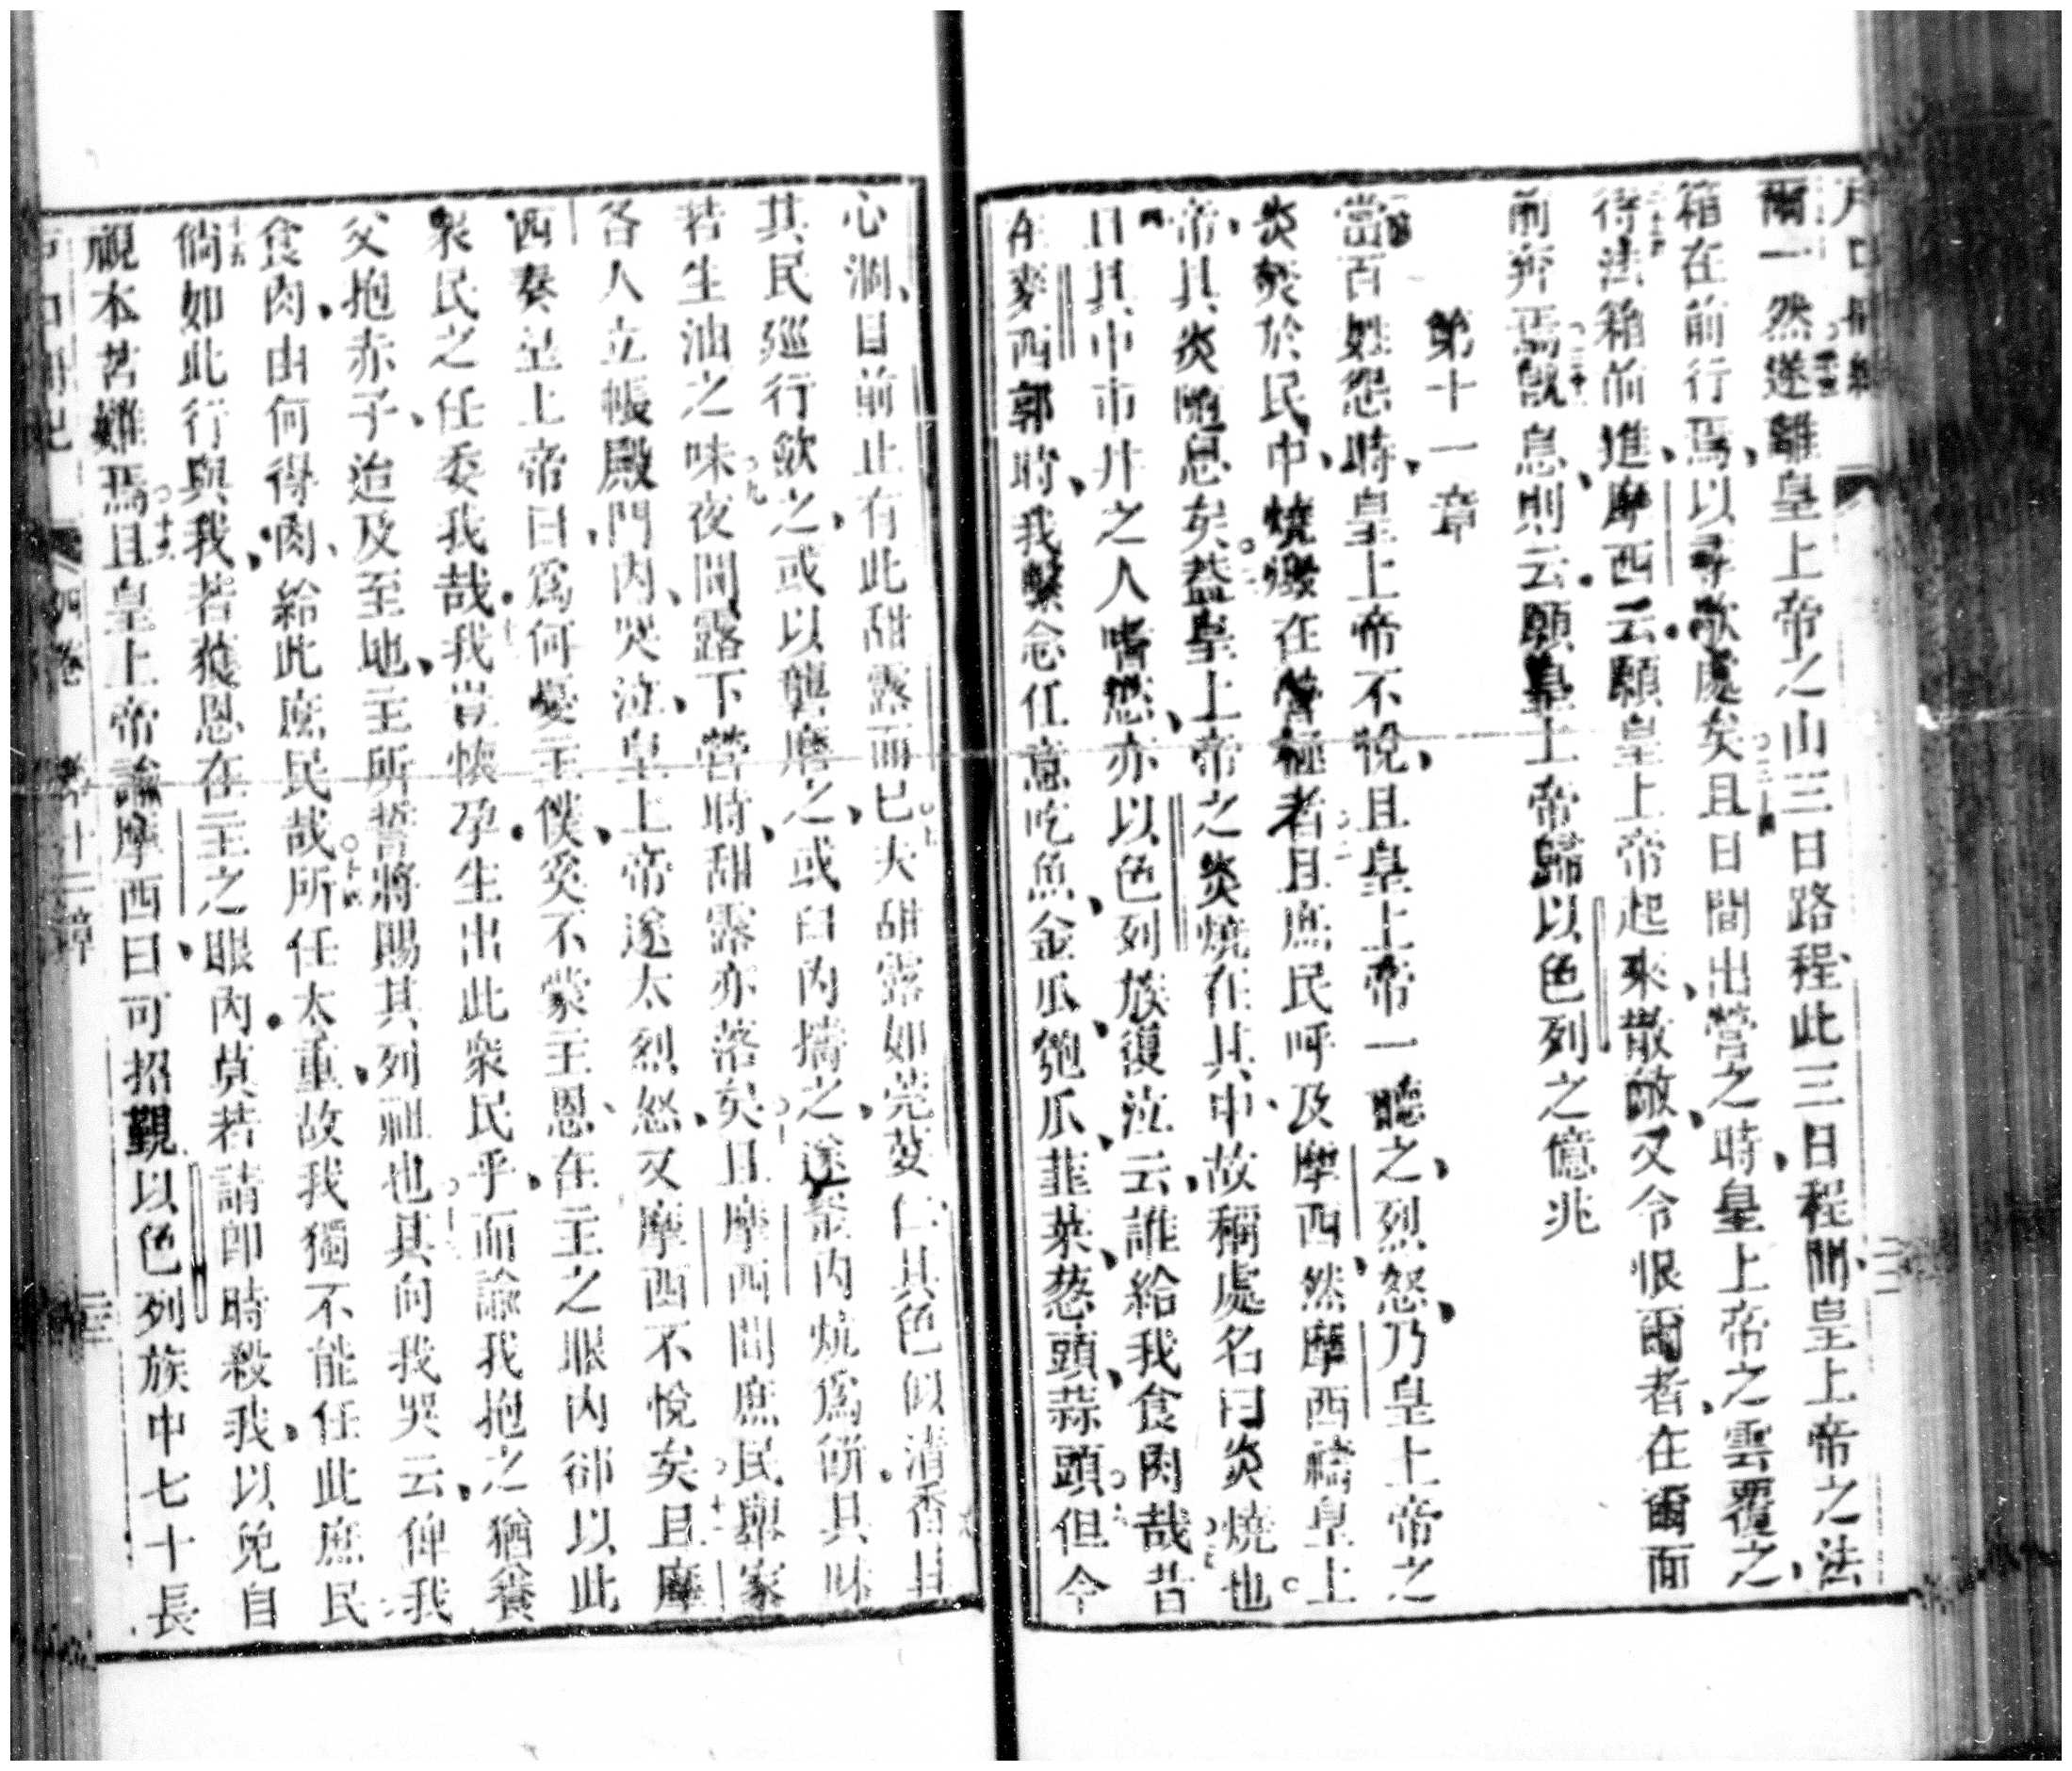 爾一然遂離皇上帝之山三日路程此三日程間皇上帝之法
箱在前行焉以尋歇處矣且日間出營之時皇上帝之雲覆之
待法箱前進摩西云願皇上帝起來散敵又令恨爾者在爾面
前奔焉旣息則云願皇上帝歸以色列之億兆
第十一章
當百姓怨時皇上帝不悅且皇上帝一聽之烈怒乃皇上帝之
炎熒於民中燒燬在營極者且庶民呼及摩西然摩西禱皇上
帝其炎隨息矣蓋皇上帝之炎燒在其中故稱處名曰炎燒也
且其中市井之人嗜慾亦以色列族復泣云誰給我食肉哉昔
在麥西郭時我繫念任意吃魚金瓜匏瓜韭菜葱頭蒜頭但今
心涸目前止有此甜露而已夫甜露如芫荽仁其色似清香且
其民廵行歛之或以礱磨之或臼內擣之遂盤內炕爲餅其味
若生油之味夜間露下營時甜露亦落矣且摩西聞庶民舉家
各人立帳殿門內哭泣皇上帝遂太烈怒又摩西不悅矣且摩
西奏皇上帝曰爲何憂主僕奚不蒙主恩在主之眼內卻以此
衆民之任委我哉我豈懷孕生出此衆民乎而諭我抱之猶養
父抱赤子迨及至地主所誓將賜其列祖也其向我哭云俾我
食肉由何得肉給此庶民哉所任太重故我獨不能任此庶民
倘如此行與我我若獲恩在主之眼內莫若請卽時殺我以免自
視本苦難焉且皇上帝諭摩西曰可招覲以色列族中七十長
戶口冊紀 四卷 第十一章